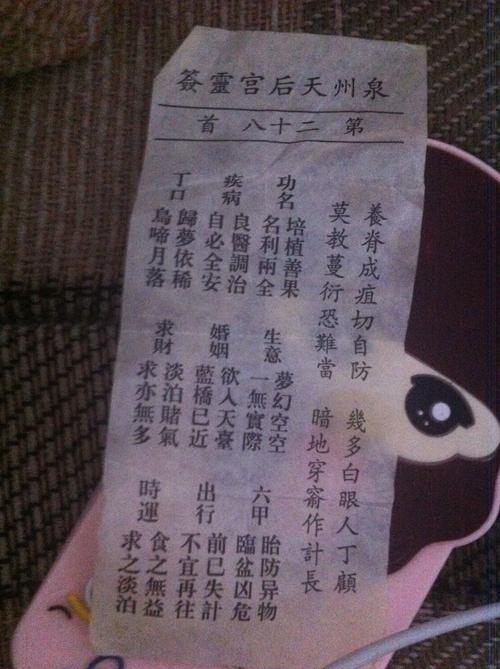 泉州天后宮靈簽
第二十八首
養脊成疽切自防
莫教蔓衍恐難當
幾多白眼人丁顧
暗地穿窬作計長
功名
培植善果
名利兩全
疾病
良醫調治
自必全安
丁口
歸夢依稀
烏啼月落
生意
夢幻空空
一無實際
婚姻
欲入天臺
藍橋已近
求財
淡泊賭氣
求亦無多
六甲
貽防异物
臨盆凶危
出行
前已失計
不宜再往
時運
食之無益
求之淡泊